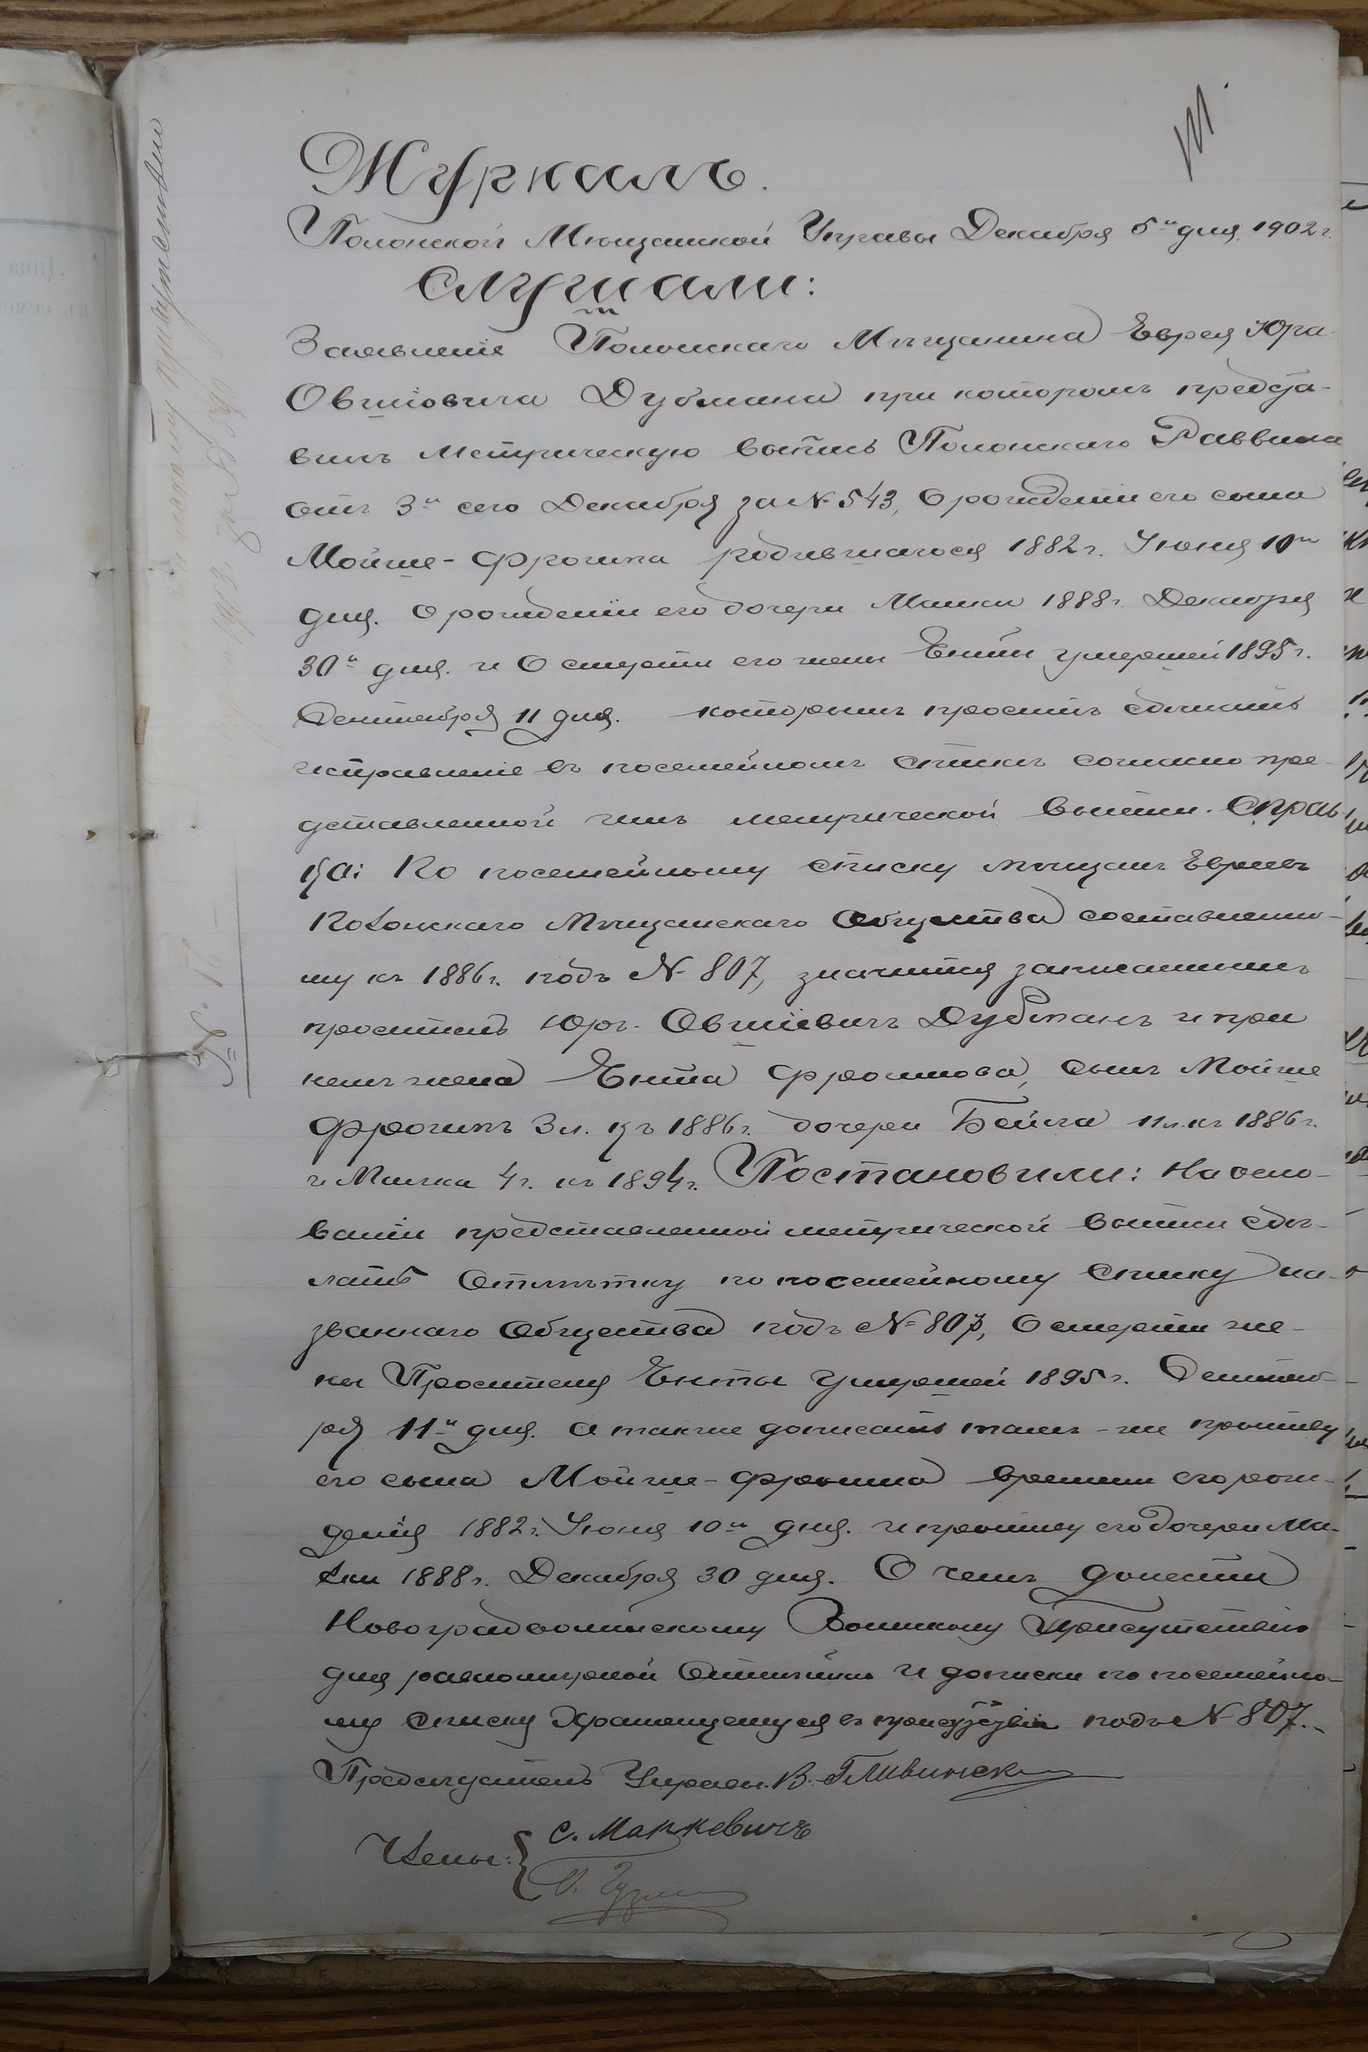 Журналъ.
Полонской Мѣщанской Управы Декабря 5го дня 1902 г.
Слушали:
Заявленіе Полонскаго Мѣщанина Еврея Юра
Овшіовича Дубмана при которомъ предста-
вилъ Метрическую выпись Полонскаго Раввина
отъ 3го сего Декабря за № 543, о рожденіи его сына
Мойше-Фроима родившагося 1882 г. Іюня 10го
дня. о рожденіи его дочери Малки 1888 г. Декабря
30го дня. и О смерти его жены Енты умершей 1895 г.
Сентября 11 дня. которымъ проситъ сдѣлать
исправленіе въ посемейномъ спискѣ согласно пре-
дставленной имъ метрической выписи. Справ-
ка: По посемейному списку мѣщанъ Евреевъ
Полонскаго Мѣщанскаго Общества составленно-
му къ 1886 г. подъ № 807, значится записаннымъ
проситель Юръ Овшіевичъ Дубманъ и при
немъ жена Ента Фроимова, сынъ Мойше
Фроимъ 3 л. къ 1886 г. дочери Бейла 11 л. къ 1886 г.
и Малка 4 г. къ 1894 г. Постановили: На осно-
ваніи представленной метрической выписи сдѣ-
лать Отмѣтку по посемейному списку на-
званнаго Общества подъ № 807, О смерти же-
ны Просителя Енты Умершей 1895 г. Сентяб-
ря 11го дня. а также дописать тамъ-же противу
его сына Мойше-Фроима времени его рож-
денія 1882 г. Іюня 10го дня. и противу его дочери Ма-
лки 1888 г. Декабря 30 дня. О чемъ донести
Новоградволынскому Воинскому Присутствію
для равномѣрной Отмѣтки и дописки по посемейно-
му списку Хранящемуся въ присутствіи подъ № 807.
Предсѣдатель Управы. В. Гливинск
Члены: С. Маркевичъ